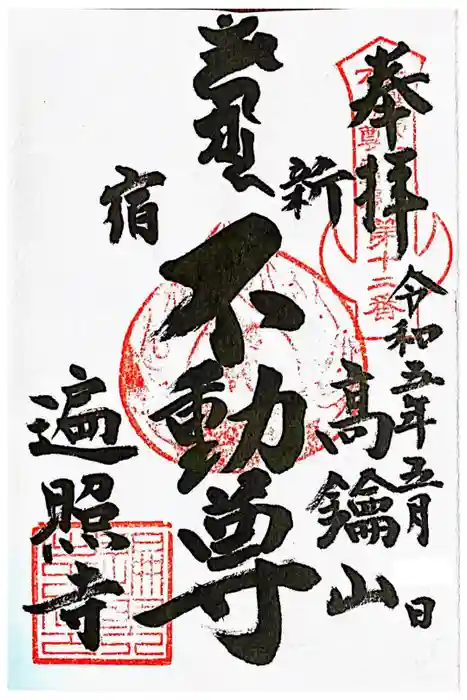 奉拝
令和五年五月 日
第十二番
新宿
不動尊
高鑰山
遍照寺